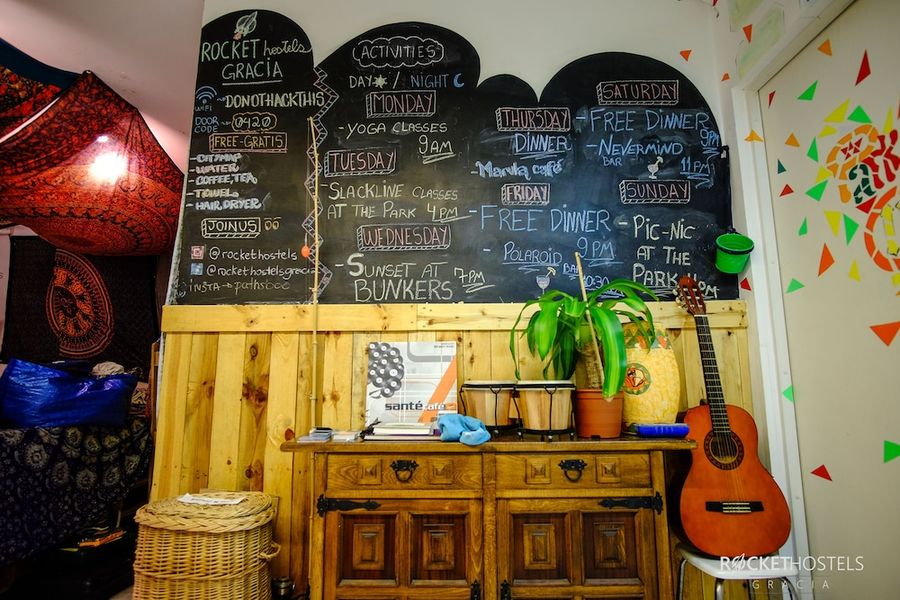 ROCKET hostels
GRACIA
WIFI DONOTHACKTHIS
DOOR CODE 0420
FREE-GRATIS
- CITYMAP
- WATER
- COFFEE, TEA,
- TOWEL
- HAIR, DRYER
JOIN US
@rockethostels
@rockethostelsgracia
ACTIVITIES
DAY / NIGHT
MONDAY
- YOGA CLASSES
9AM
TUESDAY
SLACKLINE CLASSES
AT THE PARK 4PM
WEDNESDAY
- SUNSET AT
BUNKERS 7PM
THURSDAY
DINNER
FRIDAY
- FREE DINNER
9PM
- POLAROID BAR
SATURDAY
- FREE DINNER
9PM
- NEVERMIND
BAR 11PM
SUNDAY
- PIC-NIC
AT THE
PARK
santé café
ROCKETHOSTELS
GRACIA